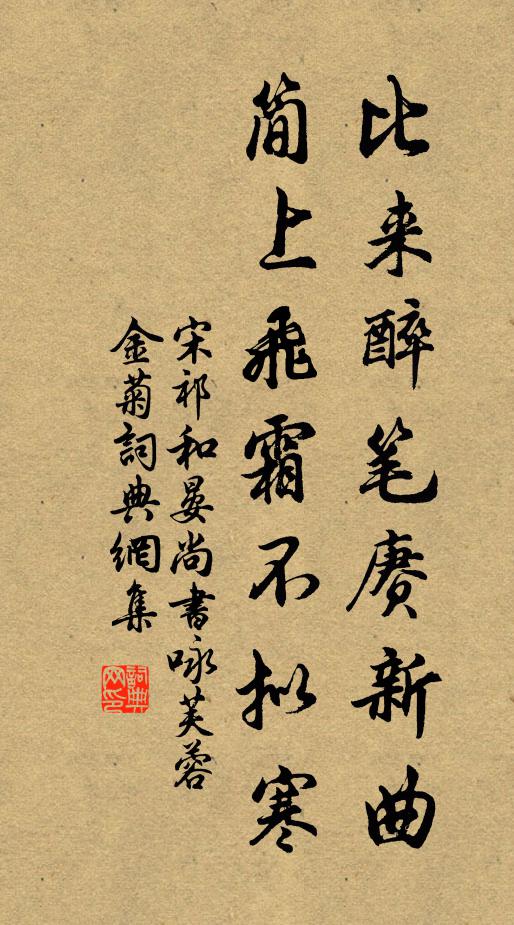 比来醉笔赓新曲
简上飛霜不拟寒
宋祁和晏尚書咏芙蓉
金菊詞典網集
詞典网印